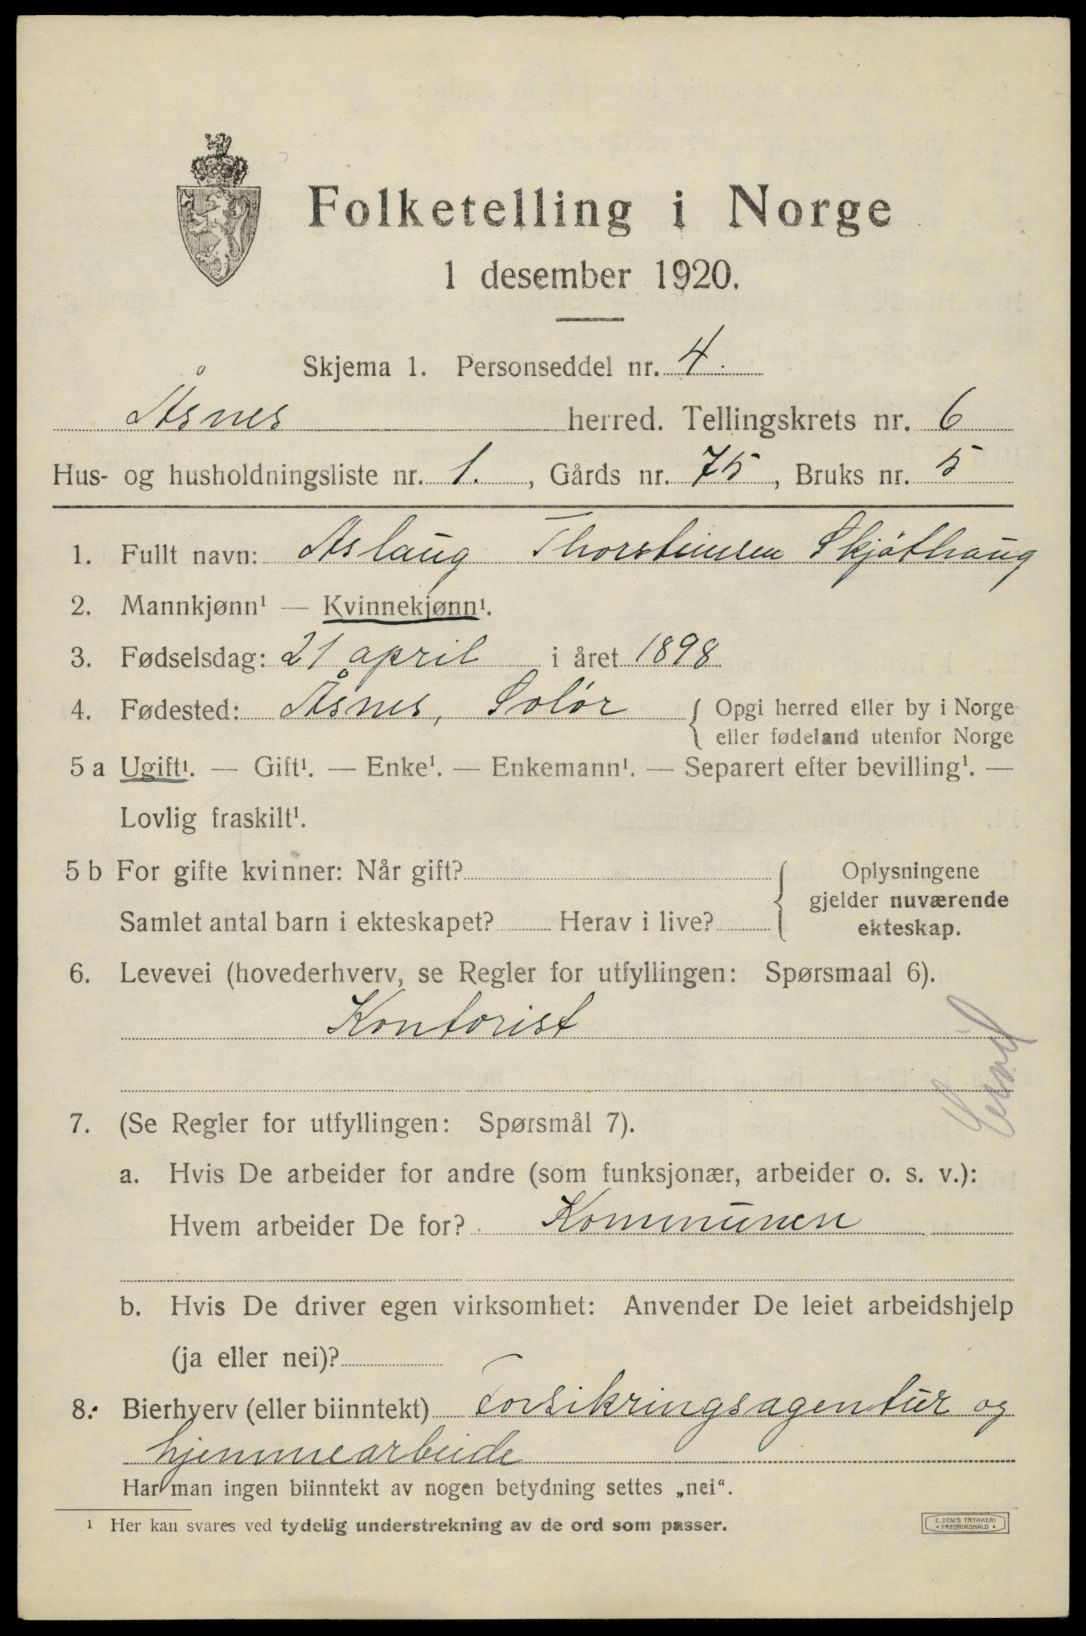 Folketelling i Norge
1 desember 1920.
Skjema 1. Personseddel nr. 4.
Åsnes herred. Tellingskrets nr. 6
Hus- og husholdningsliste nr. 1., Gårds nr. 75, Bruks nr. 5
1. Fullt navn: Aslaug Thorsteinsen Skjøthaug
2. Mannkjønn¹ — Kvinnekjønn¹.
3. Fødselsdag: 21 april i året 1898
4. Fødested: Åsnes, Solør { Opgi herred eller by i Norge
eller fødeland utenfor Norge
5 a Ugift¹. — Gift¹. — Enke¹. — Enkemann¹. — Separert efter bevilling¹. —
Lovlig fraskilt¹.
5 b For gifte kvinner: Når gift? { Oplysningene
gjelder nuværende
Samlet antal barn i ekteskapet? Herav i live? ekteskap.
6. Levevei (hovederhverv, se Regler for utfyllingen: Spørsmaal 6).
Kontorist
7. (Se Regler for utfyllingen: Spørsmål 7).
a. Hvis De arbeider for andre (som funksjonær, arbeider o. s. v.):
Hvem arbeider De for? Kommunen
b. Hvis De driver egen virksomhet: Anvender De leiet arbeidshjelp
(ja eller nei)?
8. Bierhverv (eller biinntekt) Forsikringsagentur og
hjemmearbeide
Har man ingen biinntekt av nogen betydning settes „nei“.
¹ Her kan svares ved tydelig understrekning av de ord som passer.
E. SEM'S TRYKKERI
FREDRIKSHALD